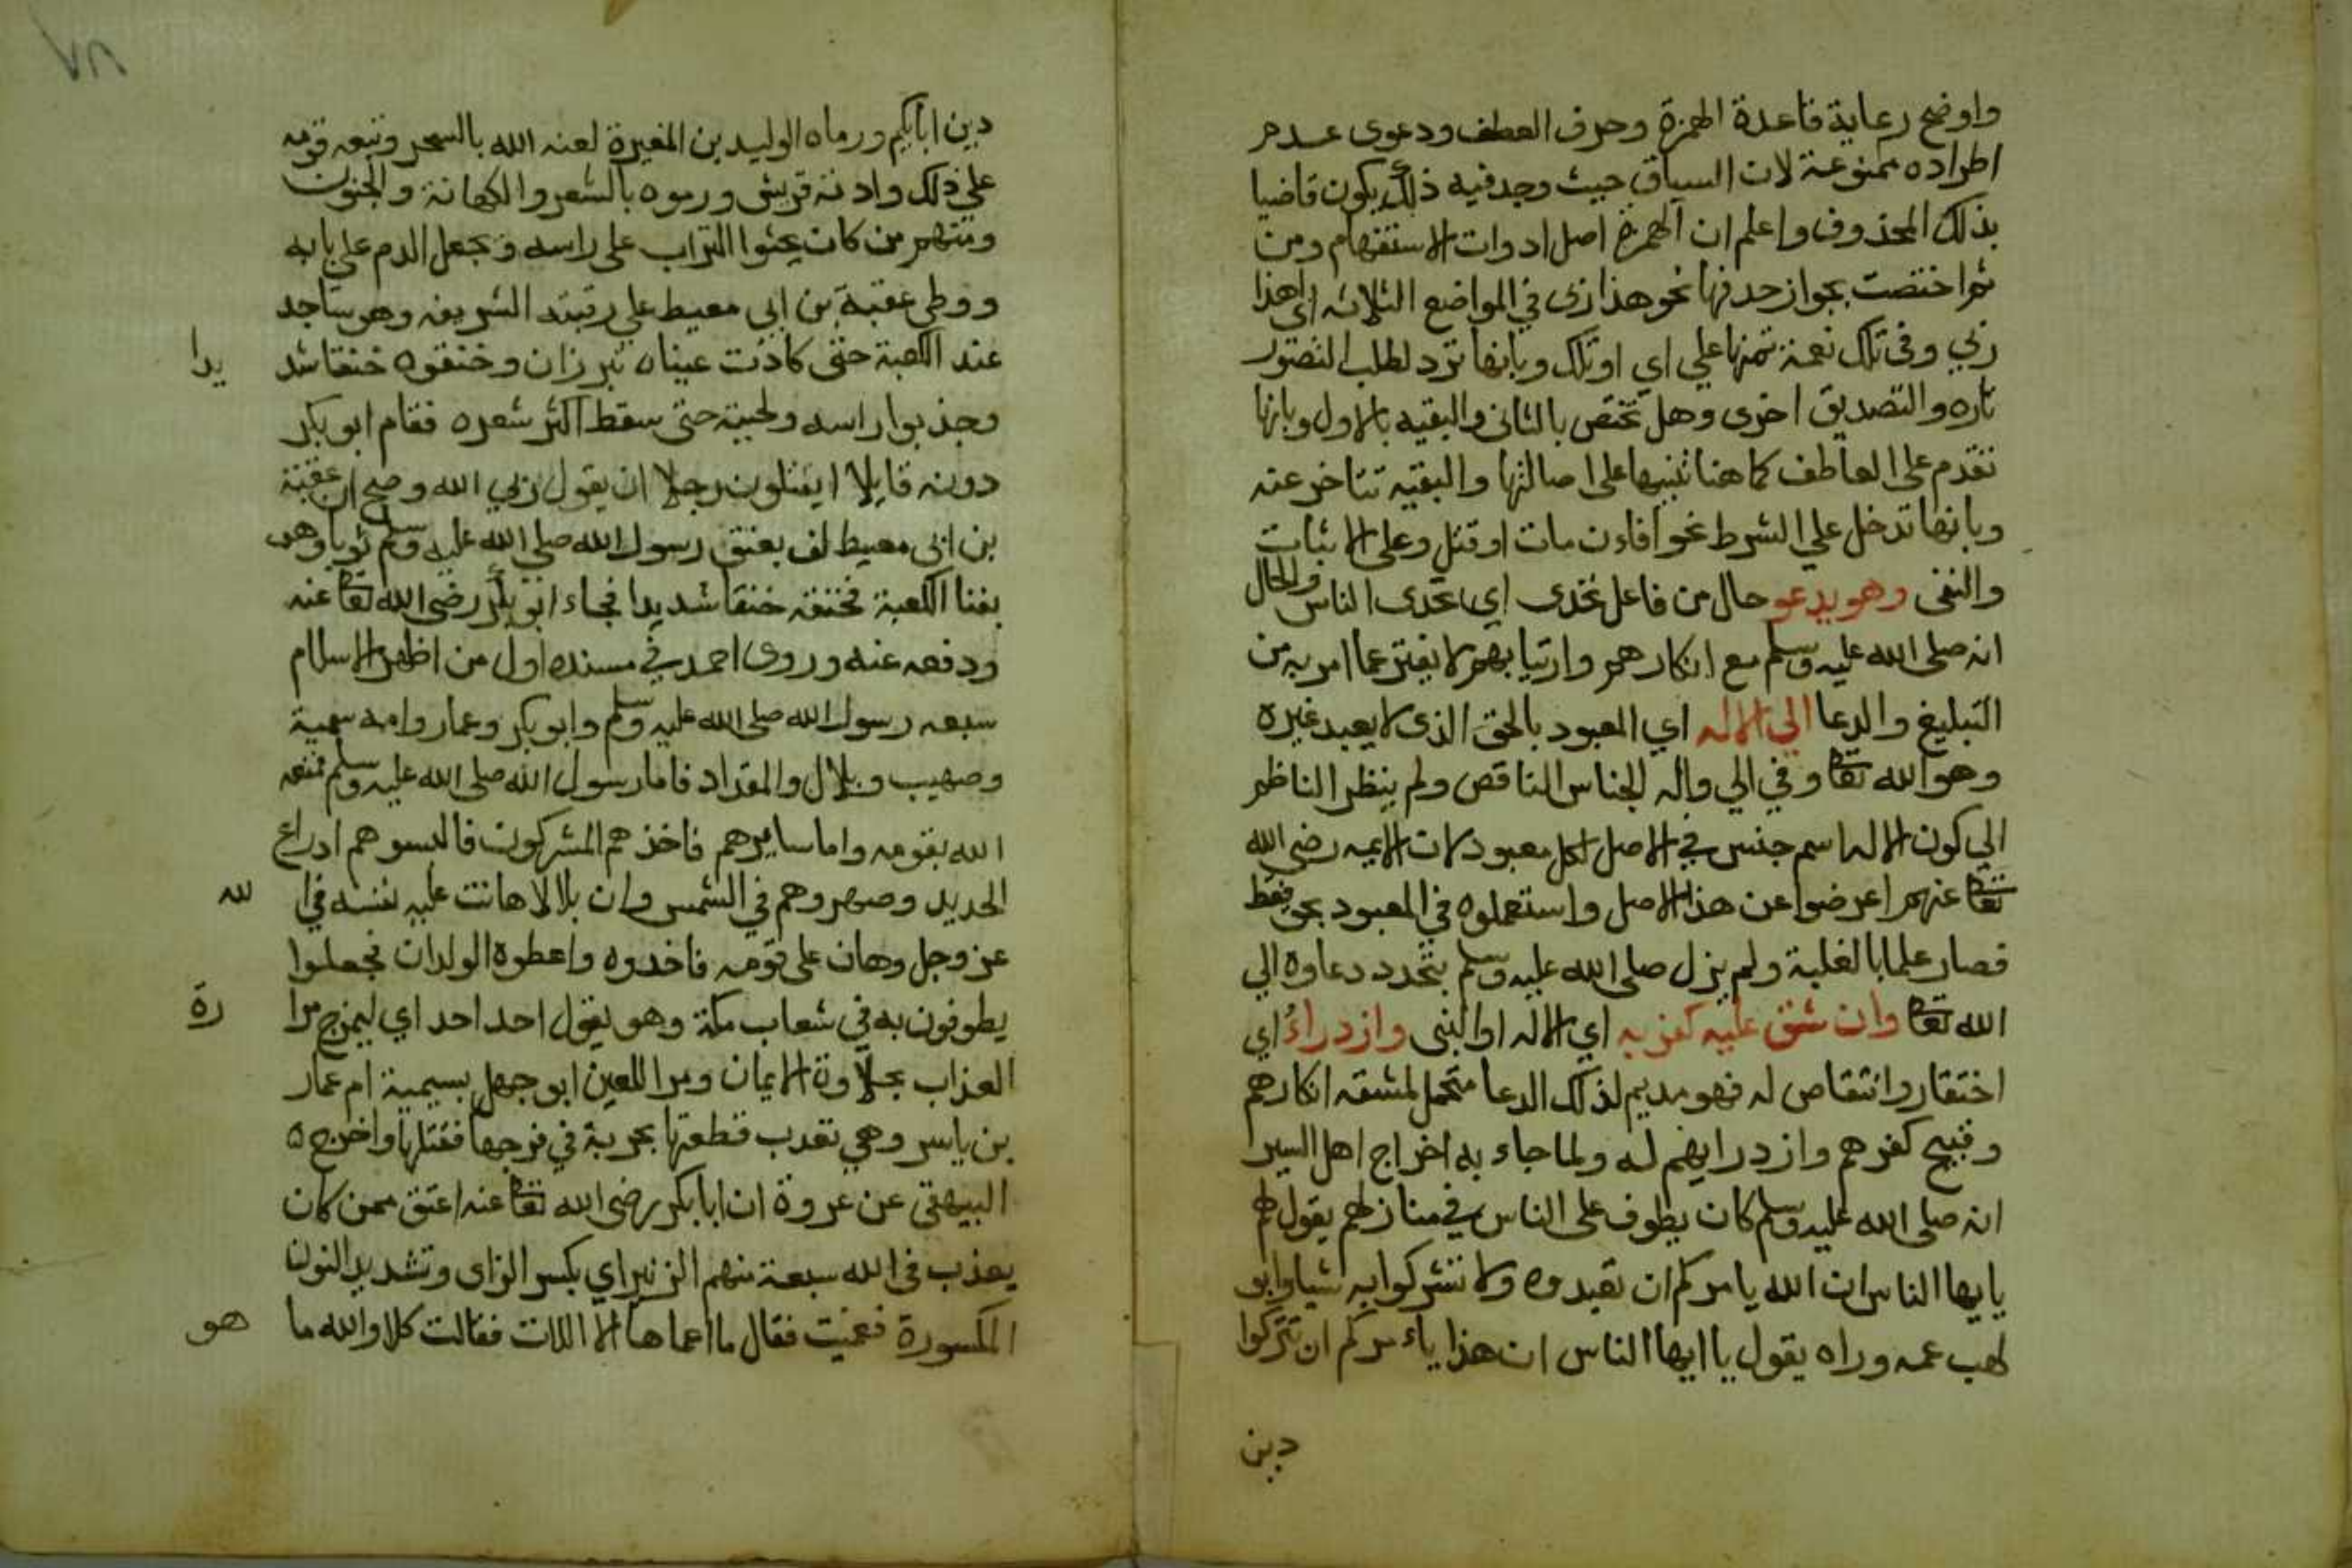 واوضح رعاية قاعدة الهمزة وحرف العطف ودعوى عدم
اطراده ممنوعة لان السياق حيث وجد فيه ذلك يكون قاضيا
بذلك المحذوف واعلم ان الهمزة اصل ادوات الاستفهام ومن
ثم اختصت بجواز حدفها نحو هذا ربى في المواضع الثلاثه اي اهذا
ربي وفى تلك نعمة تمنها علي اي اوتلك وبانها ترد لطلب التصور
تاره والتصديق اخرى وهل تختص بالثانى والبقيه بالاول وبانها
تقدم على العاطف كما هنا تنبيها على اصالتها والبقيه تتاخر عنه
وبانها تدخل علي الشرط نحو افاءن مات او قتل وعلى الاثبات
والنفى وهو يدعو حال من فاعل تحدى اي تحدى الناس والحال
انه صلى الله عليه وسلم مع انكارهم وارتيابهم لا يفتر عما امر به من
التبليغ والدعا الي الاله اي المعبود بالحق الذى لا يعبد غيره
وهو الله تعا وفي الي واله الجناس الناقص ولم ينظر الناظم
الي كون الاله اسم جنس في الاصل لكل معبود لان الايمه رضى الله
تعا عنهم اعرضوا عن هذا الاصل واستعملوه في المعبود بحق فقط
فصار علما بالغلبة ولم يزل صلى الله عليه وسلم يتجدد دعاوه الي
الله تعا وان شق عليه كفر به اي الاله او النبى وازدراءُ اي
احتقار وانتقاص له فهو مديم لذلك الدعا متحمل لمشقه انكارهم
وقبيح كفرهم وازدرايهم له ولما جاء به اخراج اهل السير
انه صلى الله عليه وسلم كان يطوف على الناس في منازلهم يقول لهم
يايها الناس ان الله يامركم ان تعبدوه ولا تشركوا به شيا وابو
لهب عمه وراه يقول يا ايها الناس ان هذا ياءمركم ان تتركوا
دين
٧٨
دين ابايكم ورماه الوليد بن المغيرة لعنه الله بالسحر وتبعه قومه
علي ذلك واذته قريش ورموه بالشعر والكهانة والجنون
ومنهم من كان يحثوا التراب على راسه ويجعل الدم علي بابه
ووطي عقبة بن ابي معيط علي رقبته الشريفه وهو ساجد
عند الكعبة حتى كادت عيناه تبرزان وخنقوه خنقا شد يدا
وجذبوا راسه ولحيته حتى سقط اكثر شعره فقام ابو بكر
دونه قايلا ايقتلون رجلا ان يقول ربي الله وصح ان عقبة
بن ابى معيط لف بعنق رسول الله صلى الله عليه وسلم ثوبا وهو
بفنا الكعبة فخنقه خنقا شديدا فجاء ابو بكر رضى الله تعا عنه
ودفعه عنه وروى احمد في مسنده اول من اظهر الاسلام
سبعه رسول الله صلى الله عليه وسلم وابو بكر وعمار وامه سمية
وصهيب وبلال والمقداد فاما رسول الله صلى الله عليه وسلم فمنعه
الله بقومه واما سايرهم فاخذهم المشركون فالبسوهم ادراع
الحديد وصهروهم في الشمس وان بلالا هانت عليه نفسه في ا لله
عز وجل وهان على قومه فاخدوه واعطوه الولدان فجعلوا
يطوفون به في شعاب مكة وهو يقول احد احد اي ليمزج مرا رة
العذاب بحلاوة الايمان ومر اللعين ابو جهل بسيمية ام عمار
بن ياسر وهي تعدب فطعنها بحربة في فرجها فقتلها واخرج ه
البيهقى عن عروة ان ابا بكر رضى الله تعا عنه اعتق ممن كان
يعذب فى الله سبعة منهم الزنيراي بكسر الزاى وتشديد النون
المكسورة فعميت فقال ما اعماها الا اللات فقالت كلا والله ما هو